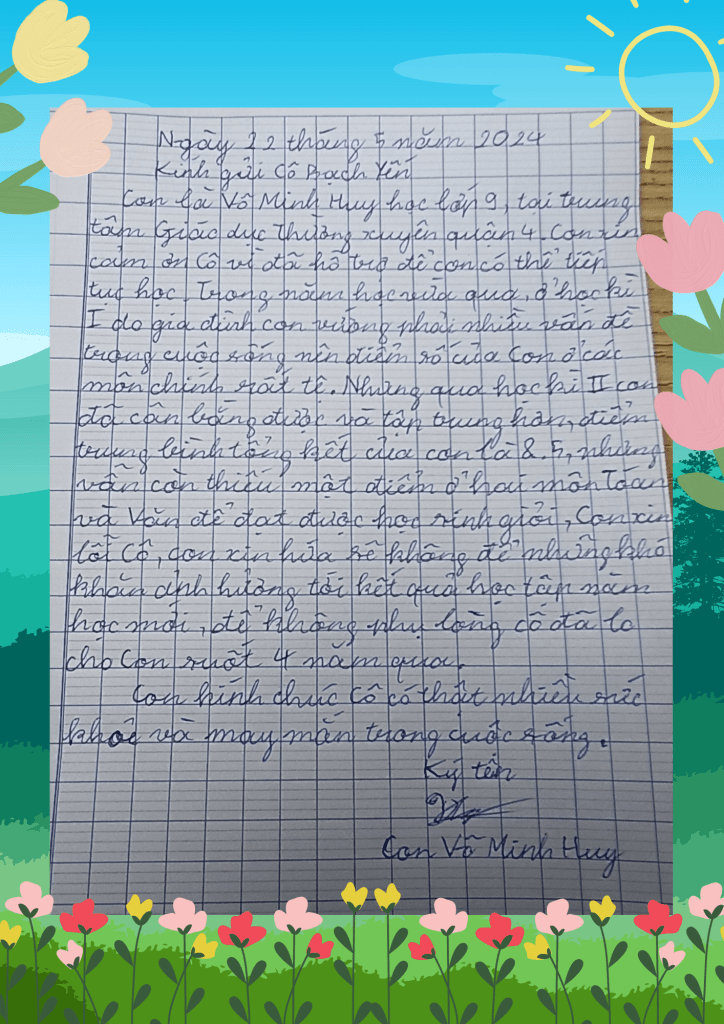 Ngày 22 tháng 5 năm 2024
Kính gửi Cô Bạch Yến
Con là Võ Minh Huy học lớp 9, tại trung
tâm Giáo dục Thường xuyên quận 4. Con xin
cảm ơn Cô vì đã hỗ trợ để con có thể tiếp
tục học. Trong năm học vừa qua, ở học kì
I do gia đình con vướng phải nhiều vấn đề
trong cuộc sống nên điểm số của Con ở các
môn chính rất tệ. Nhưng qua học kì II con
đã cân bằng được và tập trung hơn, điểm
trung bình tổng kết của con là 8.5, nhưng
vẫn còn thiếu một điểm ở hai môn Toán
và Văn để đạt được học sinh giỏi, Con xin
lỗi Cô, con xin hứa sẽ không để những khó
khăn ảnh hưởng tới kết quả học tập năm
học mới, để không phụ lòng cô đã lo
cho Con suốt 4 năm qua.
Con kính chúc Cô có thật nhiều sức
khoẻ và may mắn trong cuộc sống.
Ký tên
Con Võ Minh Huy